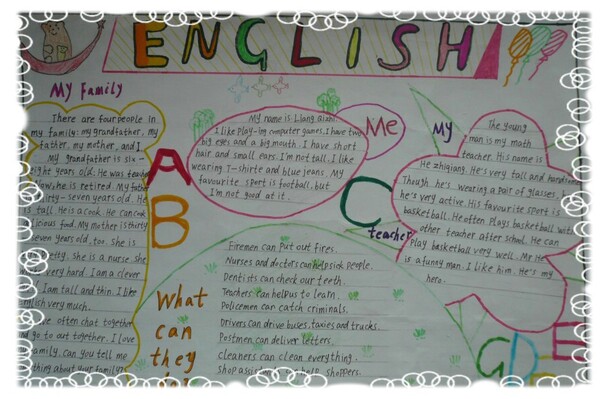 ENGLISH
My Family
There are four people in
my family: my grandfather, my
father, my mother, and I.
My grandfather is six-
eight years old. He was teacher
now, he is retired. My father
thirty-seven years old. He
is tall. He is a cook. He can cook
licious food. My mother is thirty
seven years old, too. She is
She is a nurse she
very hard. I am a clever
I am tall and thin. I like
English very much.
We often chat together
and go to out together. I love
family. can you tell me
thing about your family?
A
B
C
My name is Liang
I like play-ing computer games. I have two
big eyes and a big mouth. I have short
hair and small ears. I'm not tall. I like
wearing T-shirte and blue jeans. My
favourite sport is football, but
I'm not good at it.
Me
My
teacher
The young
man is my math
teacher. His name is
He zhiqiang. He's very tall and handsome
Though he's wearing a pair of glasses, I
he's very active. His favourite sport is
basketball. He often Plays basketball with
other teacher after school. He can
Play basketball very well. Mr He
is a funny man. I like him. He's my
hero.
What
can
they
do?
Firemen can put out fires.
Nurses and doctors can help sick people.
Dentists can check our teeth.
Teachers can help us to learn.
Policemen can catch criminals.
Drivers can drive buses, taxies and trucks.
Postmen can deliver letters.
cleaners can clean everything.
Shop assistants can help shoppers.
G
D
E